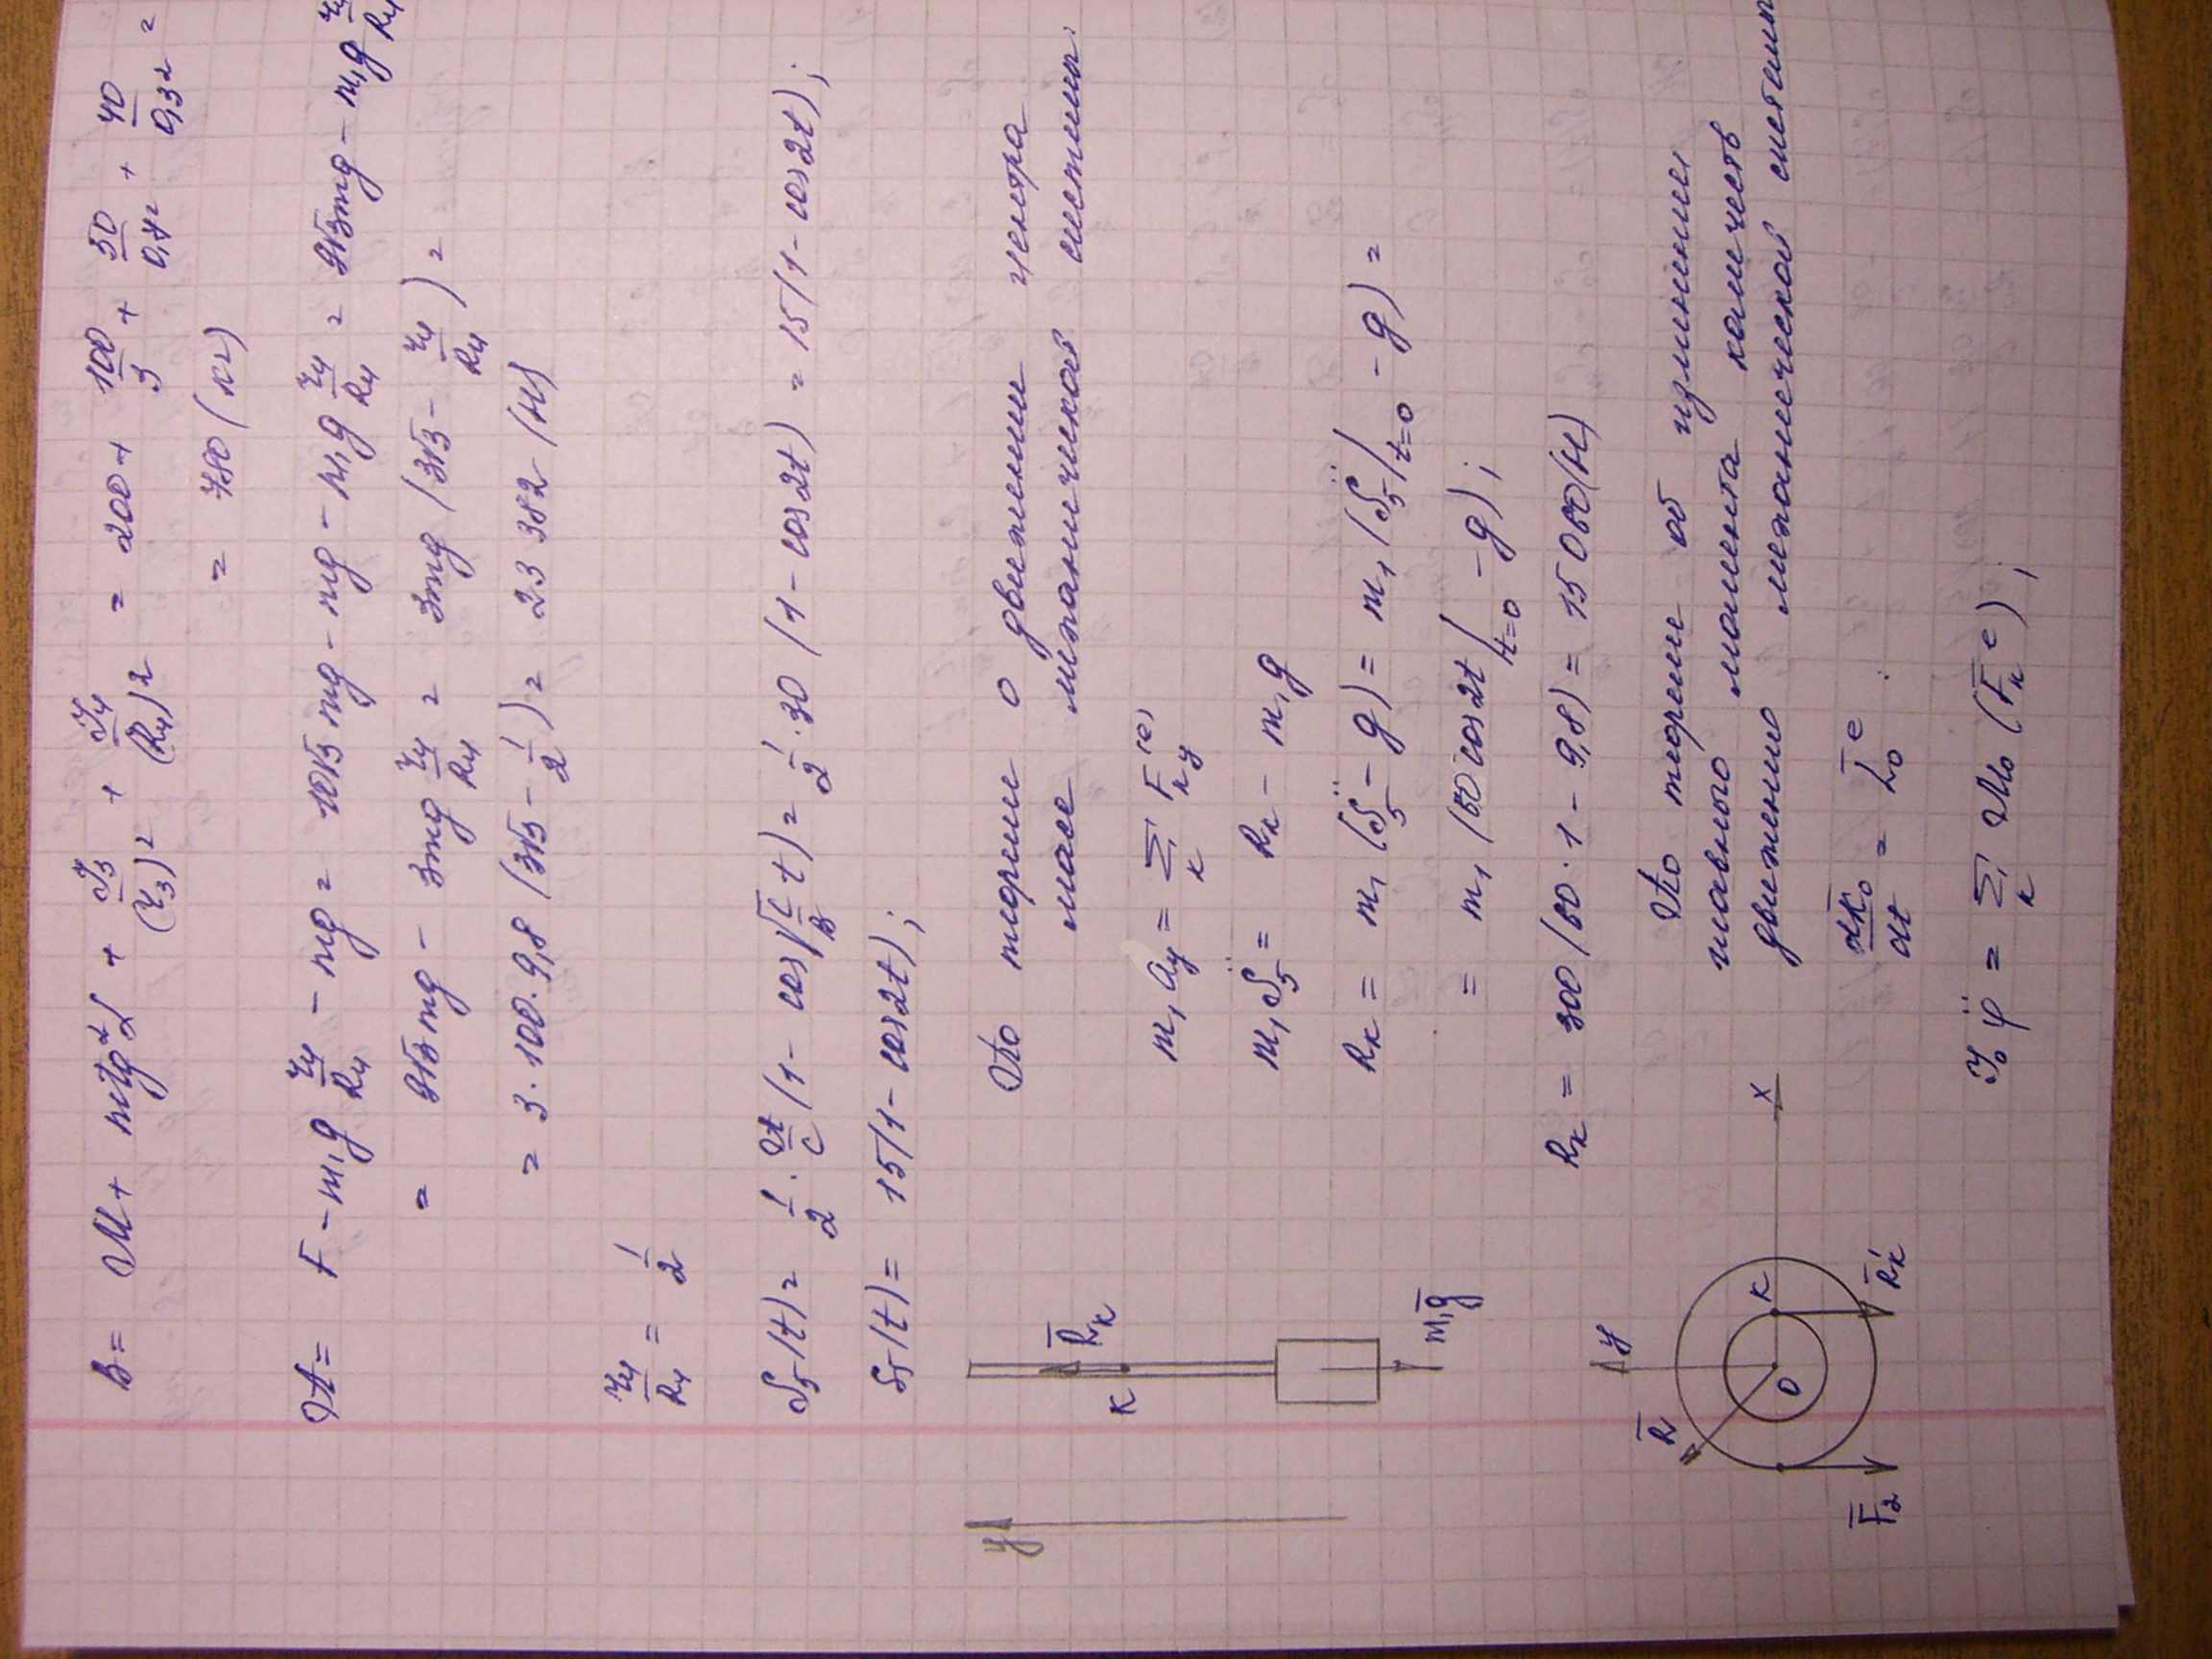 B = M + m tg²α + J₃/(r₃)² + J₄/(R₄)² = 200 + 100/3 + 50/0,4² + 40/0,3² =
= 780 (кг)
A = F - m₁g r₄/R₄ - mg = 10√3 mg - mg - m₁g r₄/R₄ = 9√3 mg - m₁g r₄/R₄
= 9√3 mg - 3mg r₄/R₄ = 3mg (3√3 - r₄/R₄) =
= 3·100·9,8 (3√3 - 1/2) = 23 382 (Н)
r₄/R₄ = 1/2
S₅(t) = 1/2 · A/C (1 - cos√(C/B) t) = 1/2 · 30 (1 - cos2t) = 15(1 - cos2t);
S₅(t) = 15(1 - cos2t);
По теореме о движении центра
масс механической системы:
y
R̅ₖ
K
m₁g̅
m₁ a_y = Σₖ Fₖy⁽ᵉ⁾
m₁S̈₅ = Rₖ - m₁g
Rₖ = m₁(S̈₅ - g) = m₁(S̈₅|t=0 - g) =
= m₁(60cos2t|t=0 - g);
Rₖ = 300(60·1 - 9,8) = 15 060(Н)
По теореме об изменении
главного момента количеств
движению механической системы
y
x
R̅
O
K
F̅₂
R̅ₖ'
dK̅₀/dt = L̅₀ᵉ
J₀φ̈ = Σₖ M₀(F̅ₖᵉ);